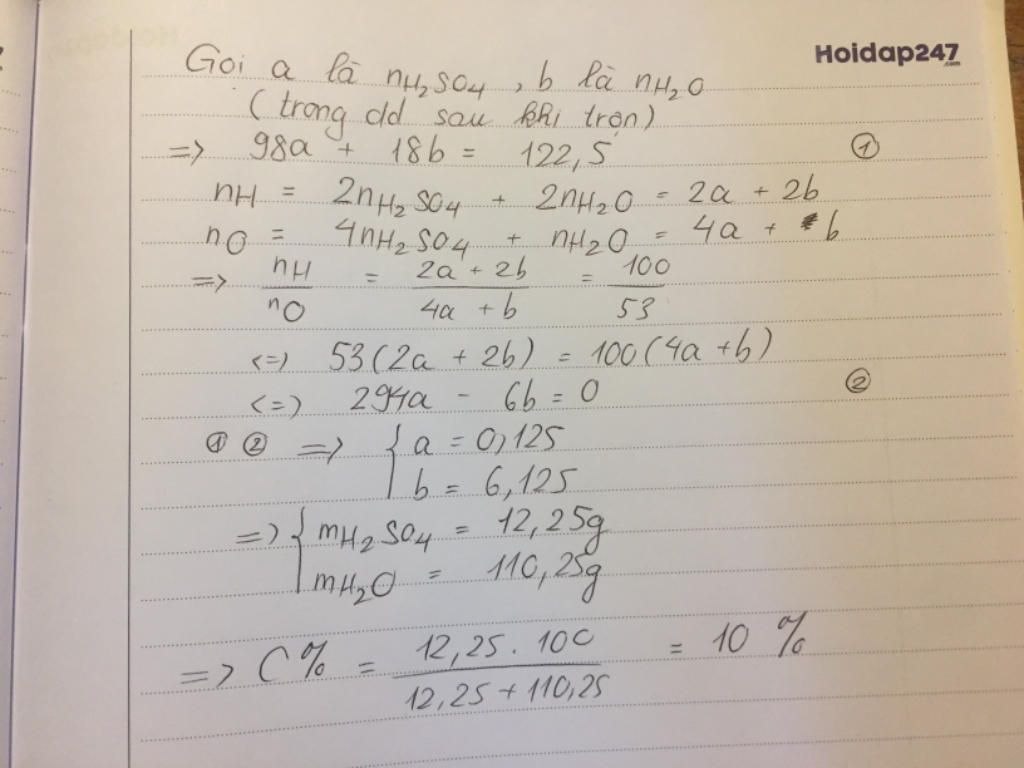 Hoidap247
.com
Gọi a là nH₂SO₄, b là nH₂O
(trong dd sau khi trộn)
=> 98a + 18b = 122,5 ①
nH = 2nH₂SO₄ + 2nH₂O = 2a + 2b
nO = 4nH₂SO₄ + nH₂O = 4a + b
=> nH/nO = (2a + 2b)/(4a + b) = 100/53
<=> 53(2a + 2b) = 100(4a + b)
<=> 294a - 6b = 0 ②
① ② => { a = 0,125
b = 6,125
=> { mH₂SO₄ = 12,25g
mH₂O = 110,25g
=> C% = (12,25 . 100)/(12,25 + 110,25) = 10 %